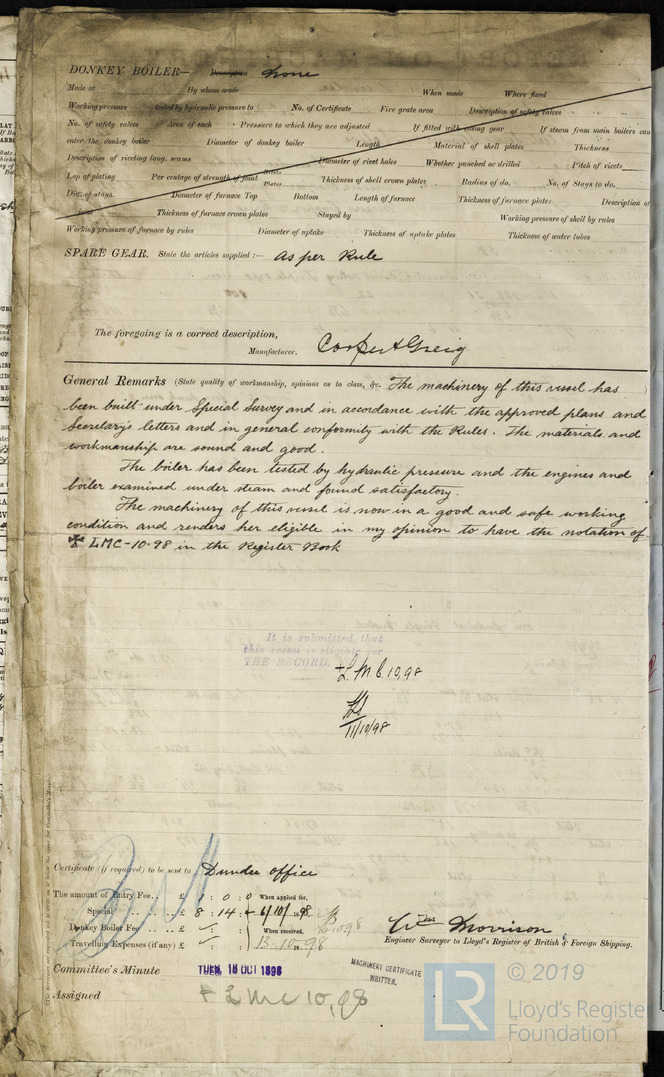 DONKEY BOILER— Description None
Made at By whom made When made Where fixed
Working pressure tested by hydraulic pressure to No. of Certificate Fire grate area Description of safety valves
No. of safety valves Area of each Pressure to which they are adjusted If fitted with easing gear If steam from main boilers can
enter the donkey boiler Diameter of donkey boiler Length Material of shell plates Thickness
Description of riveting long. seams Diameter of rivet holes Whether punched or drilled Pitch of rivets
Lap of plating Per centage of strength of joint Rivets Plates Thickness of shell crown plates Radius of do. No. of Stays to do.
Dia. of stays. Diameter of furnace Top Bottom Length of furnace Thickness of furnace plates Description of
joint Thickness of furnace crown plates Stayed by Working pressure of shell by rules
Working pressure of furnace by rules Diameter of uptake Thickness of uptake plates Thickness of water tubes
SPARE GEAR. State the articles supplied:— As per Rule
The foregoing is a correct description,
Manufacturer. Cooper & Greig
General Remarks (State quality of workmanship, opinions as to class, &c. The machinery of this vessel has
been built under Special Survey and in accordance with the approved plans and
Secretary's letters and in general conformity with the Rules. The materials and
workmanship are sound and good.
The boiler has been tested by hydraulic pressure and the engines and
boiler examined under steam and found satisfactory.
The machinery of this vessel is now in a good and safe working
condition and renders her eligible in my opinion to have the notation of
✠ LMC-10-98 in the Register Book
It is submitted, that
this vessel is eligible for
THE RECORD. + L.M.C. 10,98
11/10/98
Certificate (if required) to be sent to Dundee Office
The amount of Entry Fee .. £ 1 : 0 : 0 When applied for,
Special .. .. .. £ 8 : 14 : 6/10/1898
Donkey Boiler Fee .. .. £ When received,
Travelling Expenses (if any) £ 13.10.98
Wm Morrison
Engineer Surveyor to Lloyd's Register of British & Foreign Shipping.
Committee's Minute TUES. 18 OCT 1898
MACHINERY CERTIFICATE
WRITTEN.
Assigned + LMC 10,98
© 2019
LR Lloyd's Register
Foundation